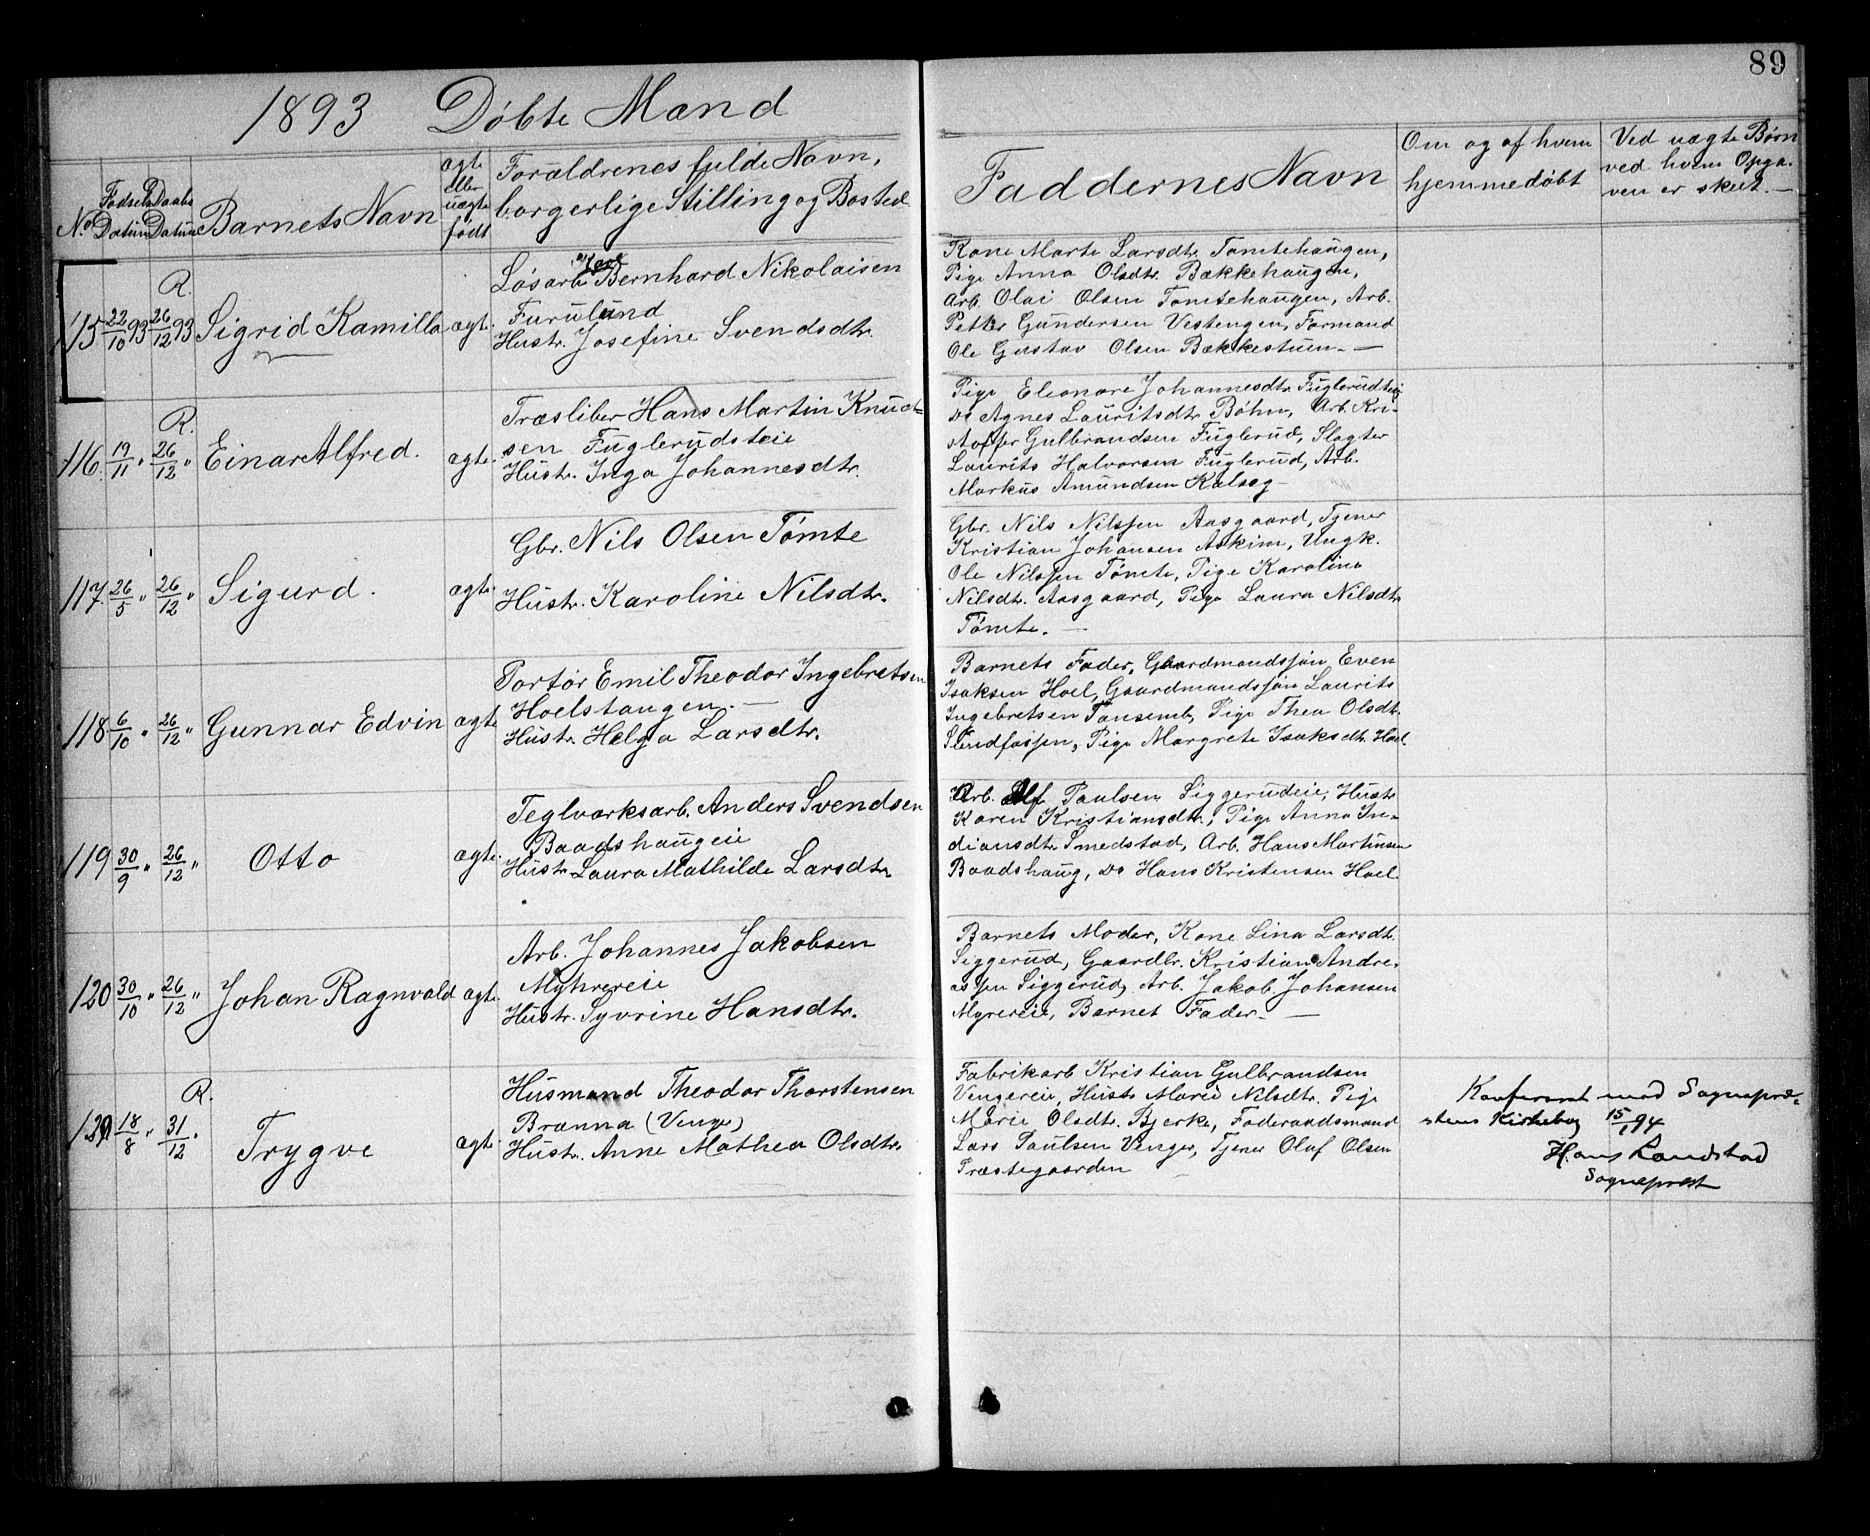 89
1893 Døbte Mænd
No.
Fødsels Datum
Daabs Datum
Barnets Navn
ægte eller uægte født
Forældrenes fulde Navn,
borgerlige Stilling og Bosted
Faddernes Navn
Om og af hvem
hjemmedøbt
Ved uægte Børn
ved hvem Opga-
ven er skeet.—
R.
115 22/10 93 26/12 93 Sigrid Kamilla ægt.
Løsarb. Bernhard Nikolaisen
Furulund
Hustr. Josefine Svendsdtr.
Kone Marte Larsdtr. Tømtehaugen,
Pige Anna Olsdtr. Bækkehaugen,
Arb. Olai Olsen Tomtehaugen, Arb.
Petter Gundersen Vestengen, Formand
Ole Gustav Olsen Bækkestuen.—
R.
116. 19/11 " 26/12 " Einar Alfred. ægte.
Træsliber Hans Martin Knud-
sen Fuglerudsteie
Hustr. Inga Johannesdtr.
Pige Eleonore Johannesdtr. Fuglerudteie
Do Agnes Lauritsdtr. Bøhn, Arb. Kri-
stoffer Gulbrandsen Fuglerud, Slagter
Laurits Halvorsen Fuglerud, Arb.
Markus Amundsen Kalsæg
117. 26/5 " 26/12 " Sigurd. ægte.
Gbr. Nils Olsen Tømte
Hustr. Karoline Nilsdtr.
Gbr. Nils Nilssen Aasgaard, Tjener
Kristian Johansen Askim, Ungk.
Ole Nilssen Tømte, Pige Karoline
Nilsdtr. Aasgaard, Pige Laura Nilsdtr.
Tømte.—
118. 6/10 " 26/12 " Gunnar Edvin ægte
Portør Emil Theodor Ingebretsen
Hoelstangen.—
Hustr. Helga Larsdtr.
Barnets Fader, Gaardmandssøn Even
Isaksen Hoel, Gaardmandssøn Laurits
Ingebretsen Tansemb, Pige Thea Olsdtr.
Slundfossen, Pige Margrete Isaksdtr. Hoel
119 30/9 " 26/12 " Otto ægte.
Teglværksarb. Anders Svendsen
Baadshaugeie
Hustr. Laura Mathilde Larsdtr.
Arb. Alf Paulsen Siggerudeie, Hustr
Karen Kristiansdtr., Pige Anna In-
diansdtr. Smedstad, Arb. Hans Martinsen
Baadshaug, Do Hans Kristensen Hoel
120 30/10 " 26/12 " Johan Ragnvald ægte.
Arb. Johannes Jakobsen
Myhrereie
Hustr. Syvrine Hansdtr.
Barnets Moder, Kone Lina Larsdtr.
Siggerud, Gaardbr. Kristian Andre-
assen Siggerud, Arb. Jakob Johansen
Myrereie, Barnet Fader.—
R.
121 18/8 " 31/12 " Trygve ægte
Husmand Theodor Thorstensen
Brænna (Venger)
Hustr. Anne Mathea Olsdtr.
Fabrikarb Kristian Gulbrandsen
Vengereie, Hustr Maren Nilsdtr. Pige
Marie Olsdtr. Bjerke, Føderaadsmand
Lars Paulsen Venger, Tjener Oluf Olsen
Præstegaarden
Konfereret med Sognepræ-
stens Kirkebog 15/1 94
Hans Landstad
Sogneprest